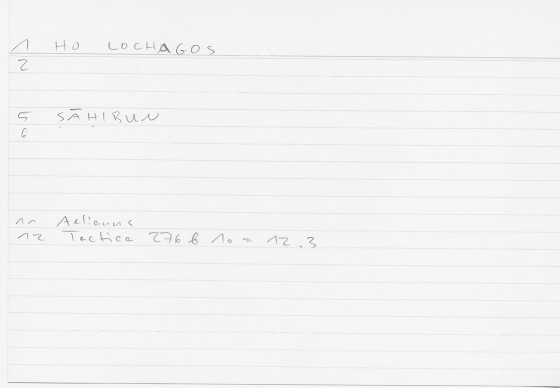 1 HO LOCHAGOS
2
5 ṢĀḤIBUN
6
11 Aelianus
12 Tactica 276 b 10 = 12.3